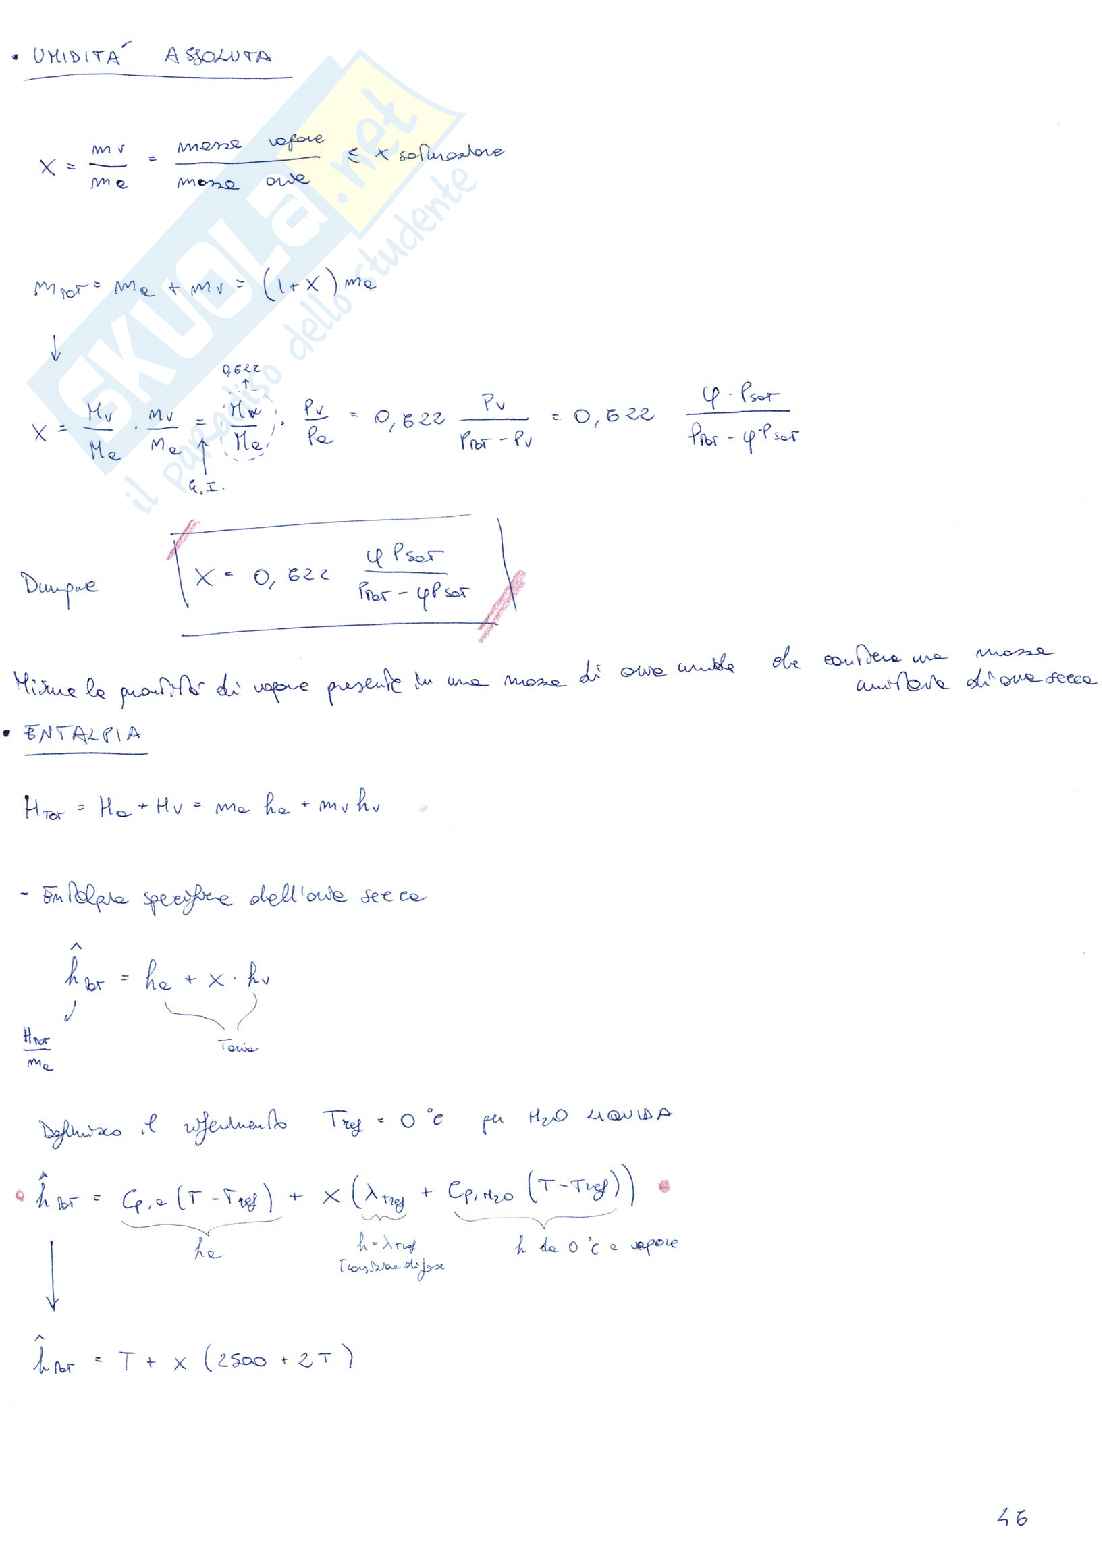 • UMIDITÁ ASSOLUTA
X = mv/ma = massa vapore/massa aria ≤ x saturazione
mTOT = ma + mv = (1+X) ma
↓
0,622
X = Mv/Ma · mv/ma = Mv/Ma · Pv/Pa = 0,622 Pv/(PTOT - Pv) = 0,622 φ·Psat/(PTOT - φ·Psat)
G.I.
Dunque X = 0,622 φPsat/(PTOT - φPsat)
Misura la quantità di vapore presente in una massa di aria umida che contiene una massa
unitaria di aria secca
• ENTALPIA
HTOT = Ha + Hv = ma ha + mv hv
- Entalpia specifica dell'aria secca
ĥTOT = ha + x · hv
HTOT/ma
Taria
Definisco il riferimento Tref = 0 °C per H2O LIQUIDA
ĥTOT = Cp,a (T - Tref) + X (λTref + Cp,H2O (T - Tref))
ha
h = λTref
Transizione di fase
h da 0 °C a vapore
ĥTOT = T + x (2500 + 2T)
46
SKUOLA.net
il paradiso dello studente